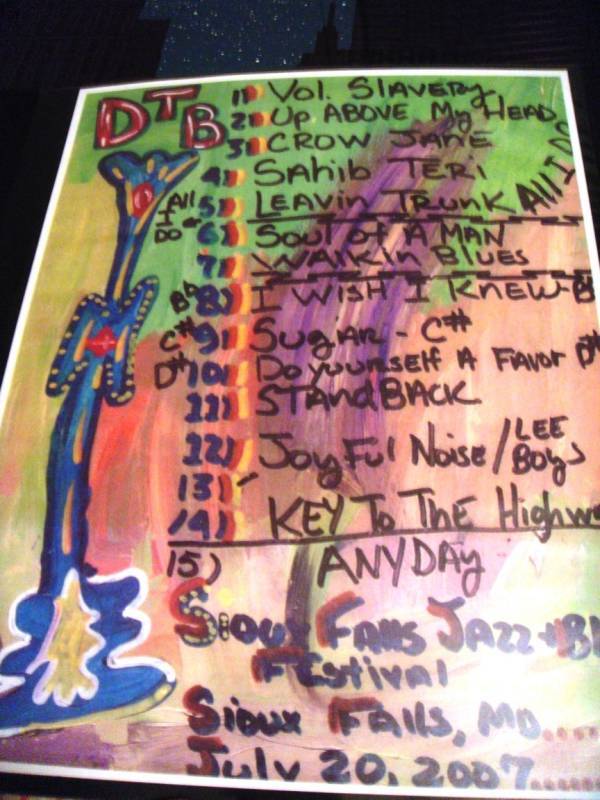 DTB
1) Vol. SLAVERY
2) UP ABOVE My HEAD
3) CROW JANE
4) SAHIB TERI
5) LEAVIN TRUNK
All I Do
6) SOUL of A MAN
7) WALKIN BLUES
Bb 8) I WISH I KNEW - B
C# 9) SugAR - C#
D# 10) Do yourself A FAVOR D#
11) STANdBACK
12) JoyFul Noise/LEE Boys
13)
14) KEY To The Highw
15) ANYDAy
Sioux Falls JAZZ + Bl
FEstival
Sioux Falls, MD.....
July 20, 2007......